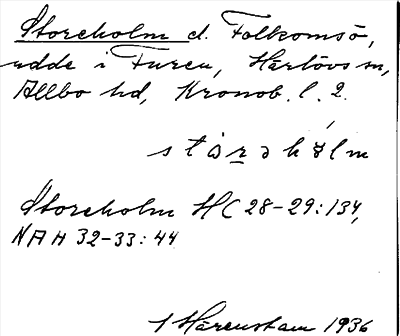 Storeholm d. Folkomsö,
udde i Furen, Härlövs sn,
Allbo hd, Kronob. l. 2.
stòrəhólm
Storeholm HC 28-29:134,
NAH 32-33:44
I Härenstam 1936